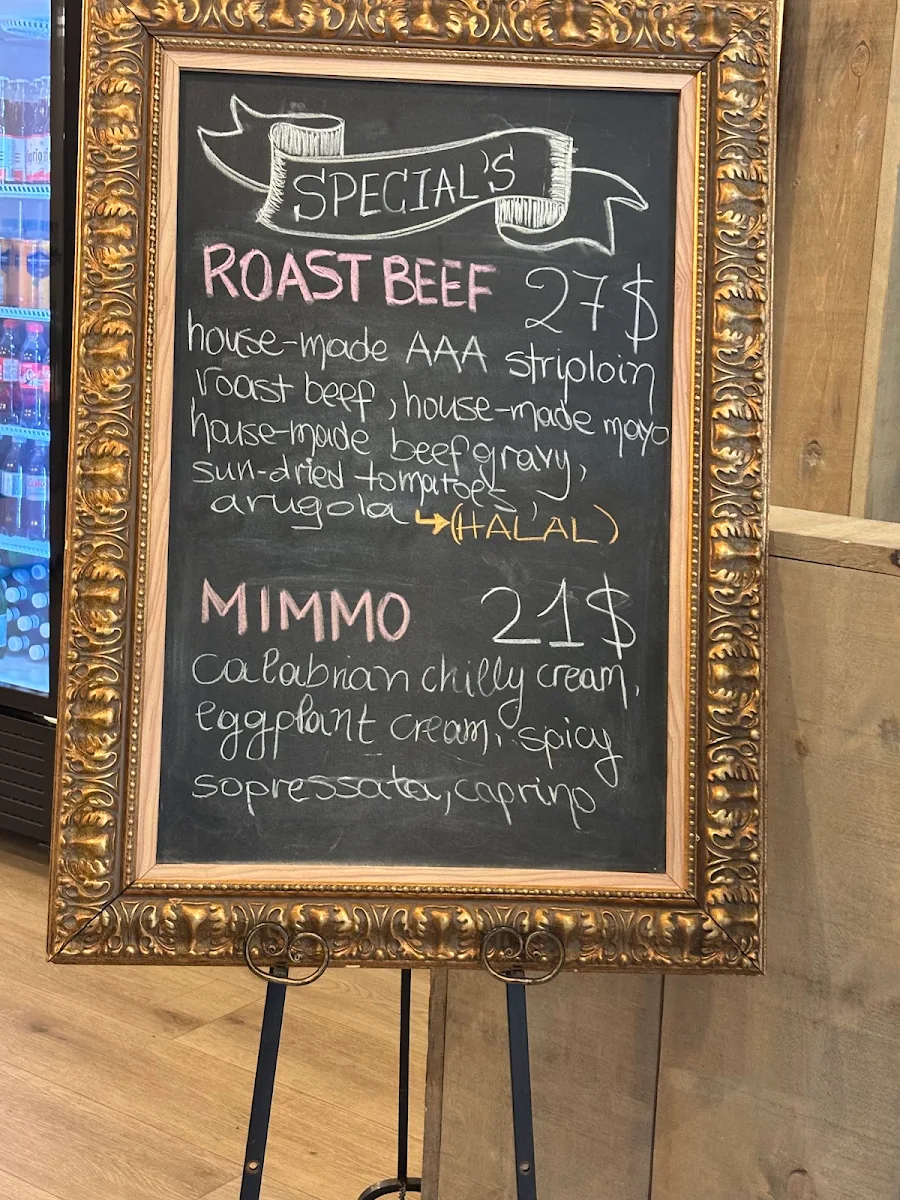 SPECIAL'S
ROAST BEEF 27$
house-made AAA striploin
roast beef, house-made mayo
house-made beef gravy,
sun-dried tomatoes,
arugola ↳(HALAL)
MIMMO 21$
Calabrian chilly cream,
eggplant cream, spicy
sopressata, caprino